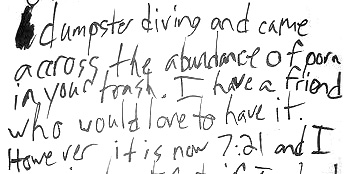 dumpster diving and came
across the abundance of porn
in your trash. I have a friend
who would love to have it.
However it is now 7:21 and I